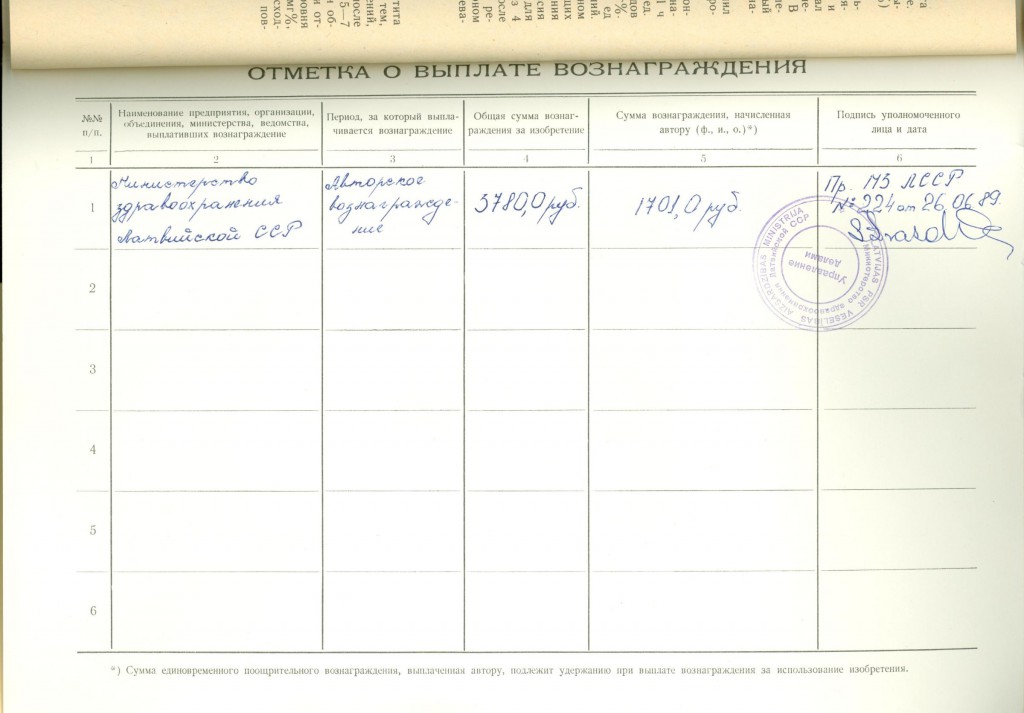 ОТМЕТКА О ВЫПЛАТЕ ВОЗНАГРАЖДЕНИЯ
№№
п/п.
Наименование предприятия, организации,
объединения, министерства, ведомства,
выплативших вознаграждение
Период, за который выпла-
чивается вознаграждение
Общая сумма вознаг-
раждения за изобретение
Сумма вознаграждения, начисленная
автору (ф., и., о.)*)
Подпись уполномоченного
лица и дата
1
2
3
4
5
6
1
Министерство
здравоохранения
Латвийской ССР
Авторское
вознагражде-
ние
3780,0 руб.
1701,0 руб.
Пр. МЗ ЛССР
№ 224 от 26.06.89.
LATVIJAS PSR VESELĪBAS AIZSARDZĪBAS MINISTRIJA
Министерство здравоохранения Латвийской ССР
Управление
делами
2
3
4
5
6
*) Сумма единовременного поощрительного вознаграждения, выплаченная автору, подлежит удержанию при выплате вознаграждения за использование изобретения.